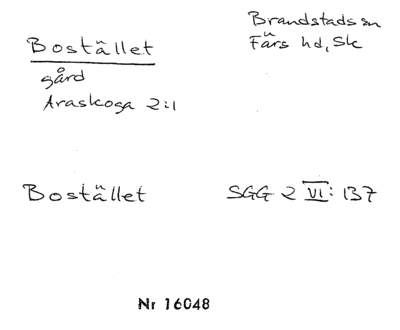 Bostället
gård
Araskoga 2:1
Brandstads sn
Färs hd, Sk
Bostället
SGG 2 VI: 137
Nr 16048